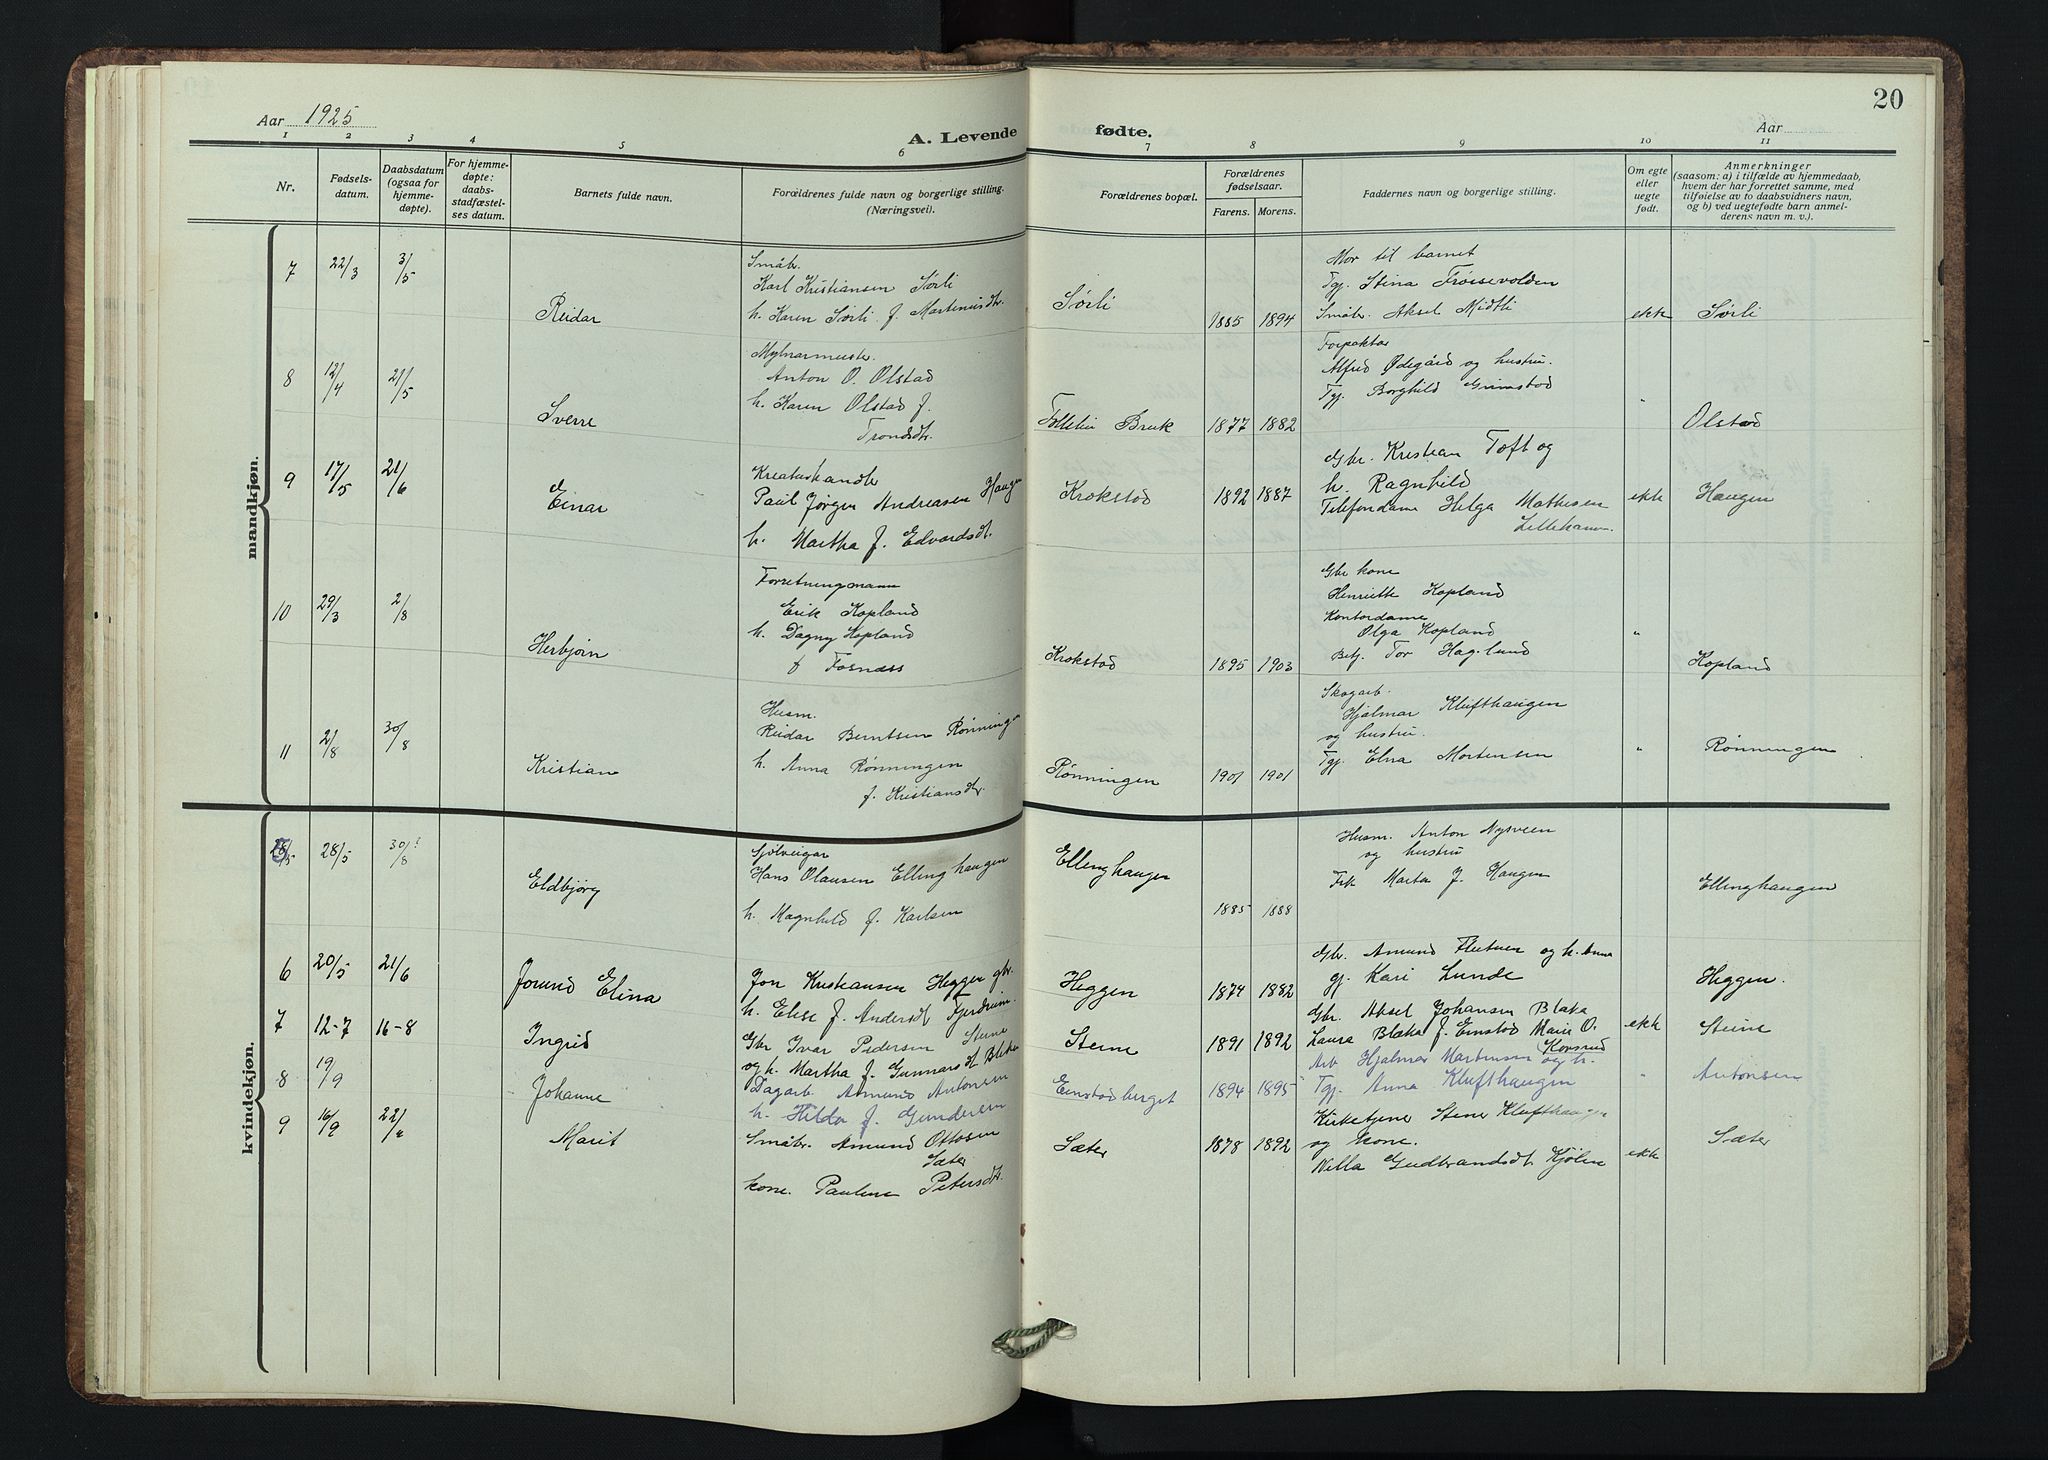 Aar 1925
A. Levende fødte.
20
Aar
1 2 3 4 5 6 7 8 9 10 11
Nr.
Fødsels-
datum.
Daabsdatum
(ogsaa for
hjemme-
døpte).
For hjemme-
døpte:
daabs-
stadfæstel-
ses datum.
Barnets fulde navn.
Forældrenes fulde navn og borgerlige stilling.
(Næringsvei).
Forældrenes bopæl.
Forældrenes
fødselsaar.
Farens. Morens.
Faddernes navn og borgerlige stilling.
Om egte
eller
uegte
født.
Anmerkninger
(saasom: a) i tilfælde av hjemmedaab,
hvem der har forrettet samme, med
tilføielse av to daabsvidners navn,
og b) ved uegtefødte barn anmel-
derens navn m. v.).
mandkjøn.
7 22/3 3/5
Reidar
Småbr.
Karl Kristiansen Sørli
h. Karen Sørli f. Martinusdtr.
Sørli
1885 1894
Mor til barnet
Tgj. Stina Frøisevolden
Småbr. Aksel Midtli
ekk
Sørli
8 12/4 21/5
Sverre
Mylnarmeister.
Anton O. Olstad
h. Karen Olstad f.
Trondsdtr.
Bruk
1877 1882
Forpaktar
Alfred Ødegård og hustru.
Tgj. Borghild Grimstad
"
Olstad
9 17/5 21/6
Einar
Kreaturhandlr
Paul Jørgen Andreasen Haugen
h. Martha f. Edvardsdt.
Krokstad
1892 1887
Gbr. Kristian Toft og
h. Ragnhild
Telefondame Helga Mathisen
ekk
Haugen
10 29/3 2/8
Herbjørn
Forretningmann
Erik Kopland
h. Dagny Kopland
f Fosness
Krokstad
1895 1903
Gbr kone
Henriette Kopland
Kontordame
Olga Kopland
Betj. Tor Haglund
"
Kopland
11 2/8 30/8
Kristian
Husm.
Reidar Berntsen Rønningen
h. Anna Rønningen
f. Kristiansdtr.
Rønningen
1901 1901
Skogarb.
Hjalmar Klufthaugen
og hustru.
Tgj. Elna Mortensen
"
Rønningen
kvindekjøn.
5 28/5 30/8?
Eldbjørg
Sjølveigar
Hans Olausen Ellinghaugen
h. Magnhild f. Karlsen
Ellinghaugen
1885 1888
Husm. Anton Nysveen
og hustru
Frk Marta J. Haugen
Ellinghaugen
6 20/5 21/6
Jorund Elina
Jon Kristiansen Heggen gbr.
h. Elise f. Andersdt Fjerdrum.
Heggen
1874 1882
Gbr. Amund Flutuen og h. Anna
gj. Kari Lunde
Heggen.
7 12-7 16-8
Ingrid
Gbr Ivar Pedersen Steine
og h. Martha f. Gunnarsdt Blaka
Steine
1891 1892
Gbr. Aksel Johansen Blaka
Laura Blaka f. Einstad Marie O.
Korsrud
ekk
Steine
8 19/9
Johanne
Dagarb Amund Antonsen
h. Hilda f. Gundersen
Einstadberget
1894 1895
Arb Hjalmar Martinsen og h.
Tgj. Anna Klufthaugen
"
Antonsen
9 16/9 22/
Marit
Småbr. Amund Ottosen
Sæter
kone. Pauline Petersdtr.
Sæter
1878 1892
Kirketjener Stener Klufthaugen
og kone.
Nella Gudbrandsdt. Kjølen
ekk
Sæter